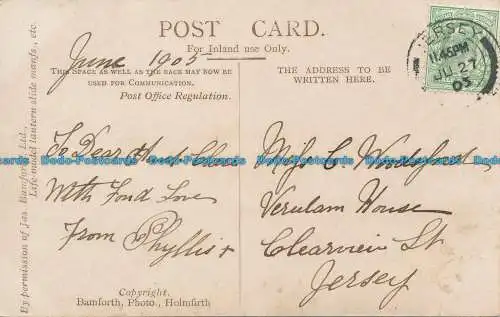 POST CARD.
For Inland use Only.
June 1905
THIS SPACE AS WELL AS THE BACK MAY NOW BE
USED FOR COMMUNICATION.
Post Office Regulation.
THE ADDRESS TO BE
WRITTEN HERE.
JERSEY
11.45PM
JU 27
05
To Dear
With Fond Love
From Phyllis x
Miss C.
Verulam House
Clearview St
Jersey
Copyright.
Bamforth, Photo., Holmfirth
By permission of Jas. Bamforth, Ltd.,
Life-model lantern slide manfs., etc.
Dodo-Postcards Dodo-Postcards Dodo-Postcards Dodo-Postcards Dodo-Postcards